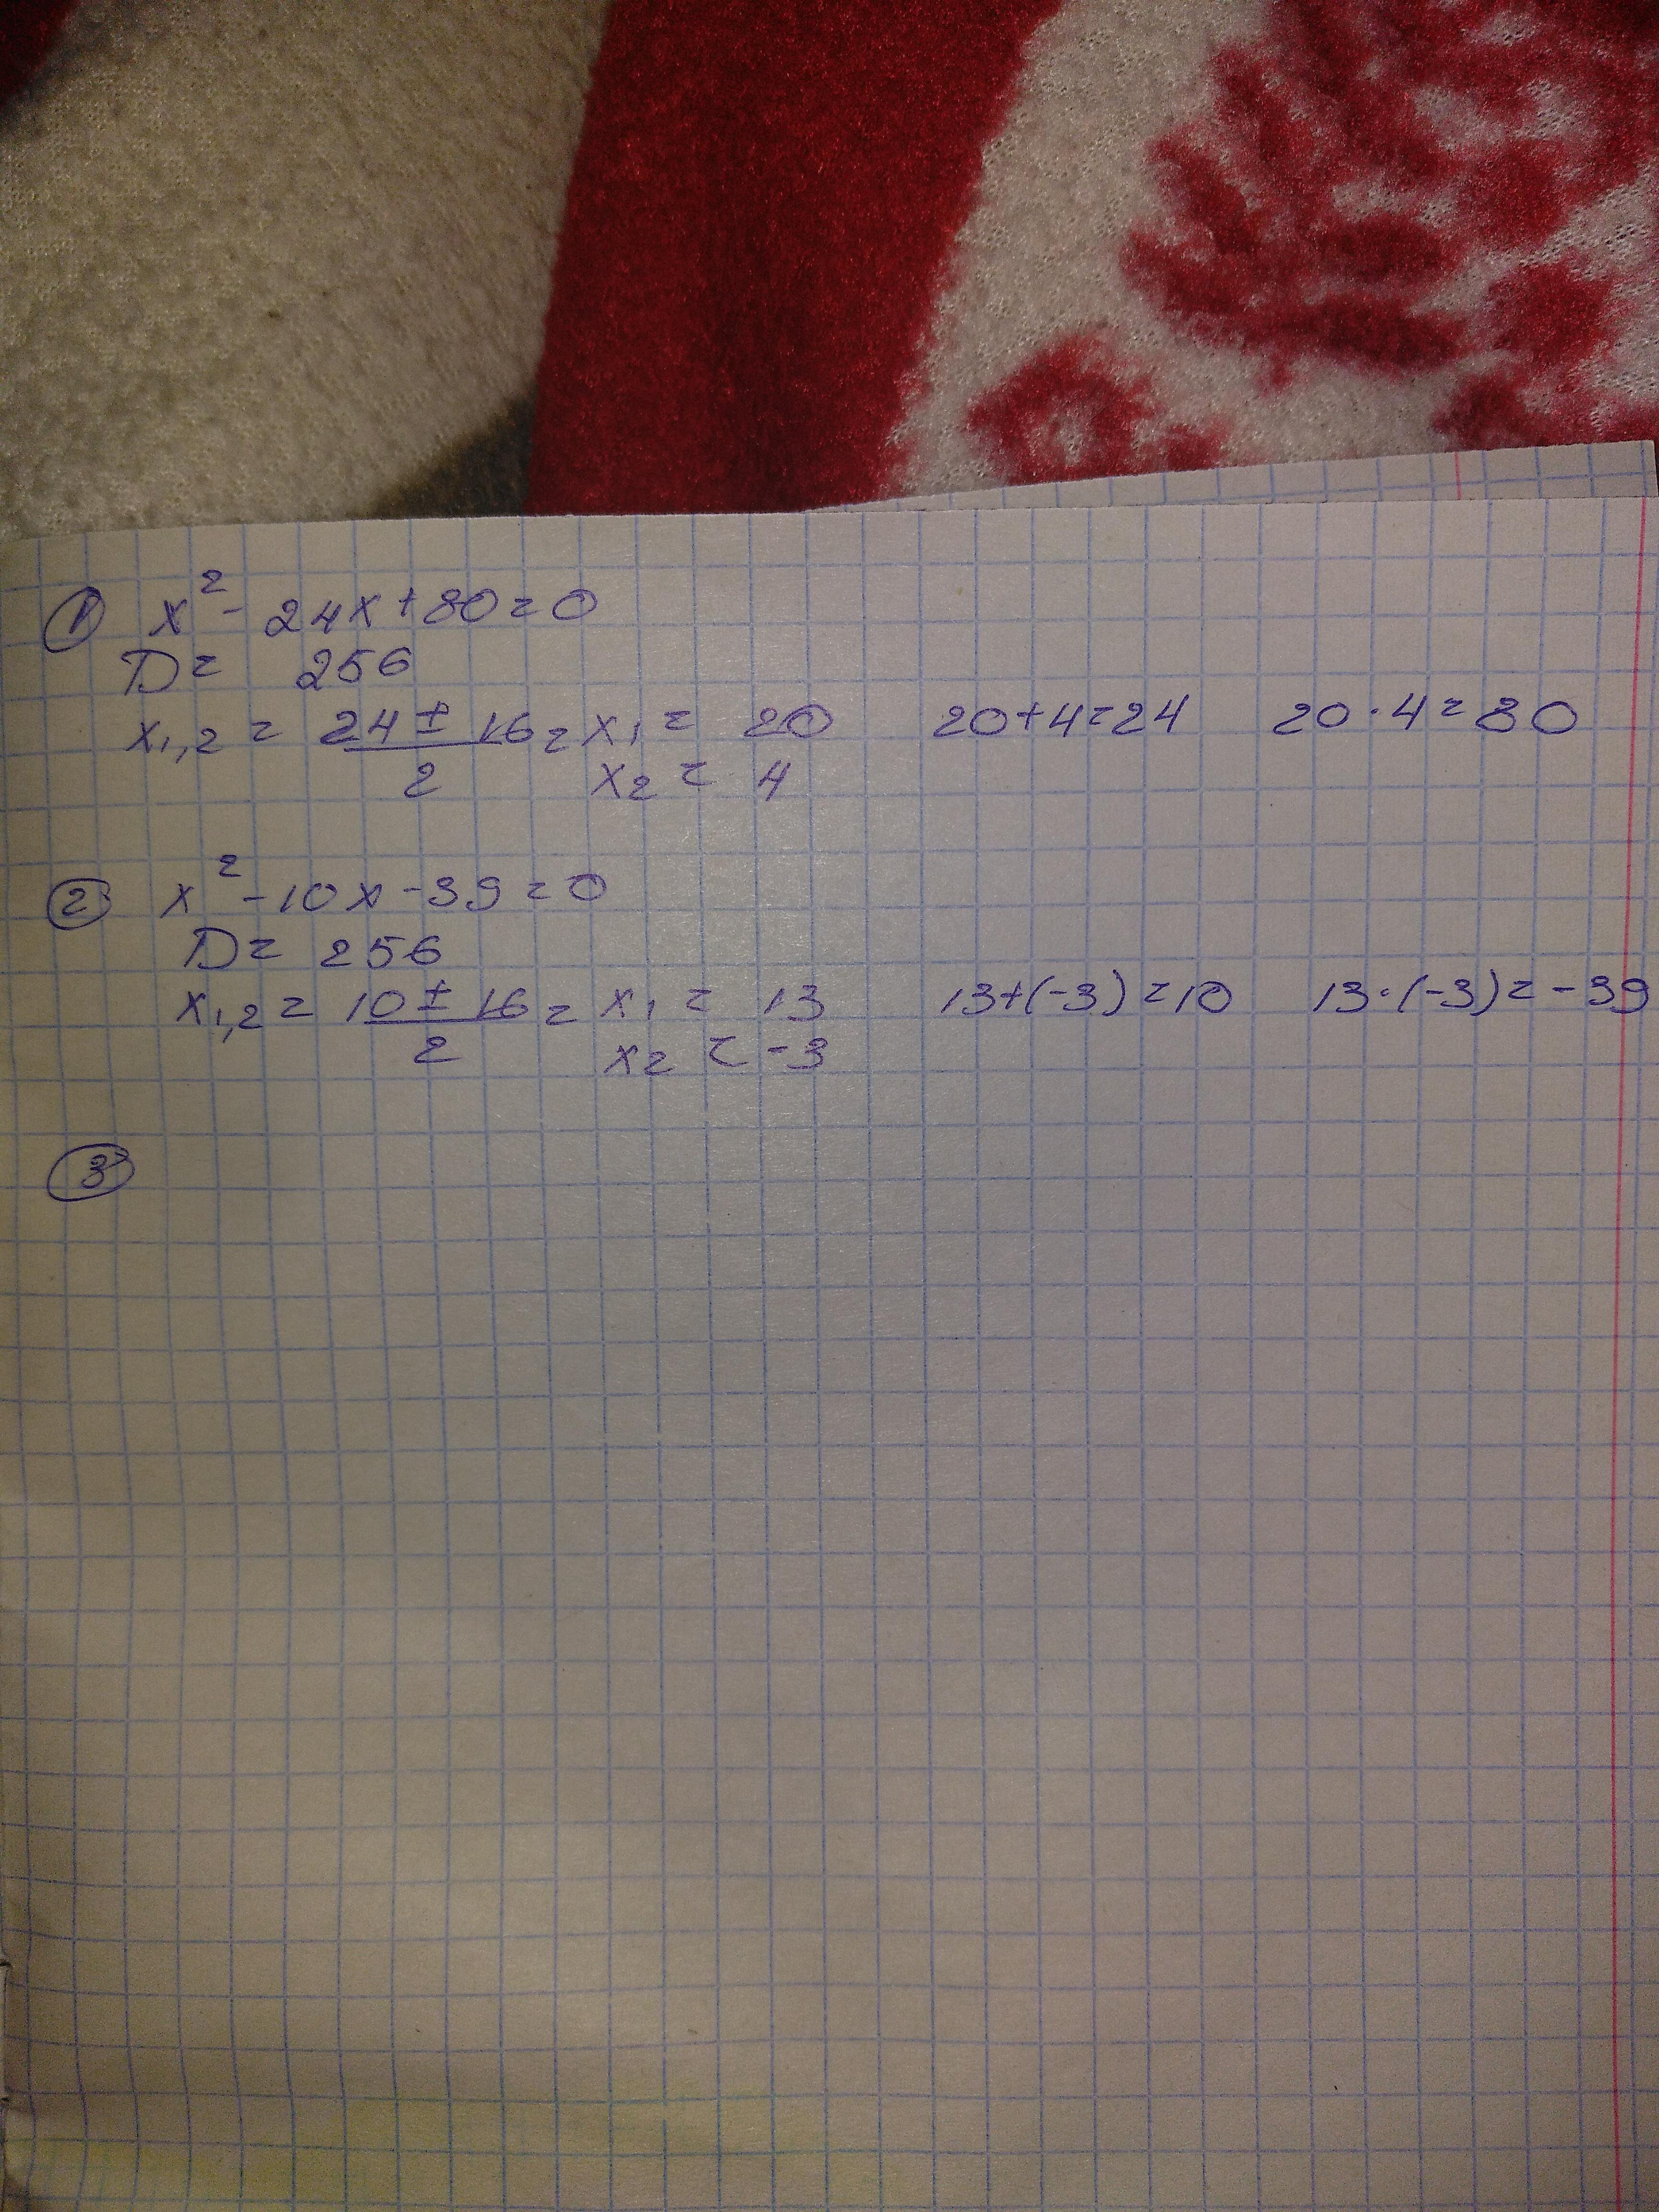 ① x² - 24x + 80 = 0
D = 256
x₁,₂ = (24 ± 16)/2 = x₁ = 20 20+4=24 20·4=80
x₂ = 4
② x² - 10x - 39 = 0
D = 256
x₁,₂ = (10 ± 16)/2 = x₁ = 13 13+(-3)=10 13·(-3)=-39
x₂ = -3
③